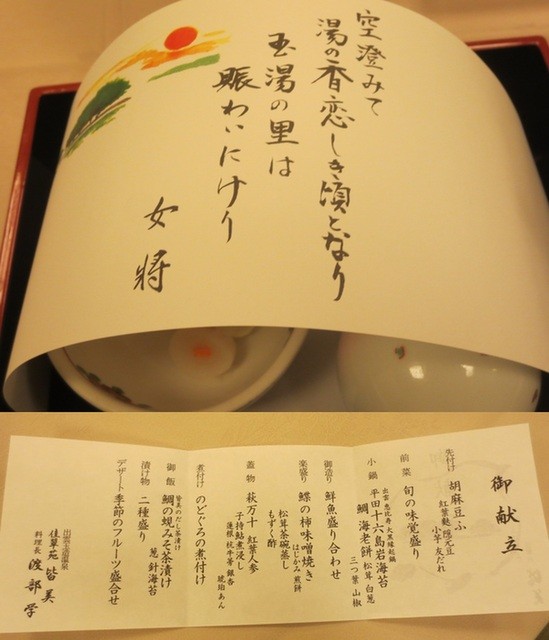 空澄みて
湯の香恋しき頃となり
玉湯の里は
賑わいにけり
女将
御献立
先付け 胡麻豆ふ
紅葉麩 隠元豆
小芋 友だれ
前菜 旬の味覚盛り
小鍋 平田十六島岩海苔
出雲 恵比寿大黒縁起鍋
松茸 白葱
鯛 海老餅
三つ葉 山椒
御造り 鮮魚盛り合わせ
楽盛り 鰈の柿味噌焼き
はじかみ 煎餅
松茸茶碗蒸し
もずく酢
蓋物 萩万十 紅葉人参
子持鮎煮浸し
蓮根 枕牛蒡 銀杏
琥珀あん
煮付け のどぐろの煮付け
御飯 鯛の規みそ茶漬け
皆美のだし茶漬け
葱 針海苔
漬け物 二種盛り
デザート 季節のフルーツ盛合せ
出雲玉造温泉
佳翠苑 皆美
料理長 渡部 学